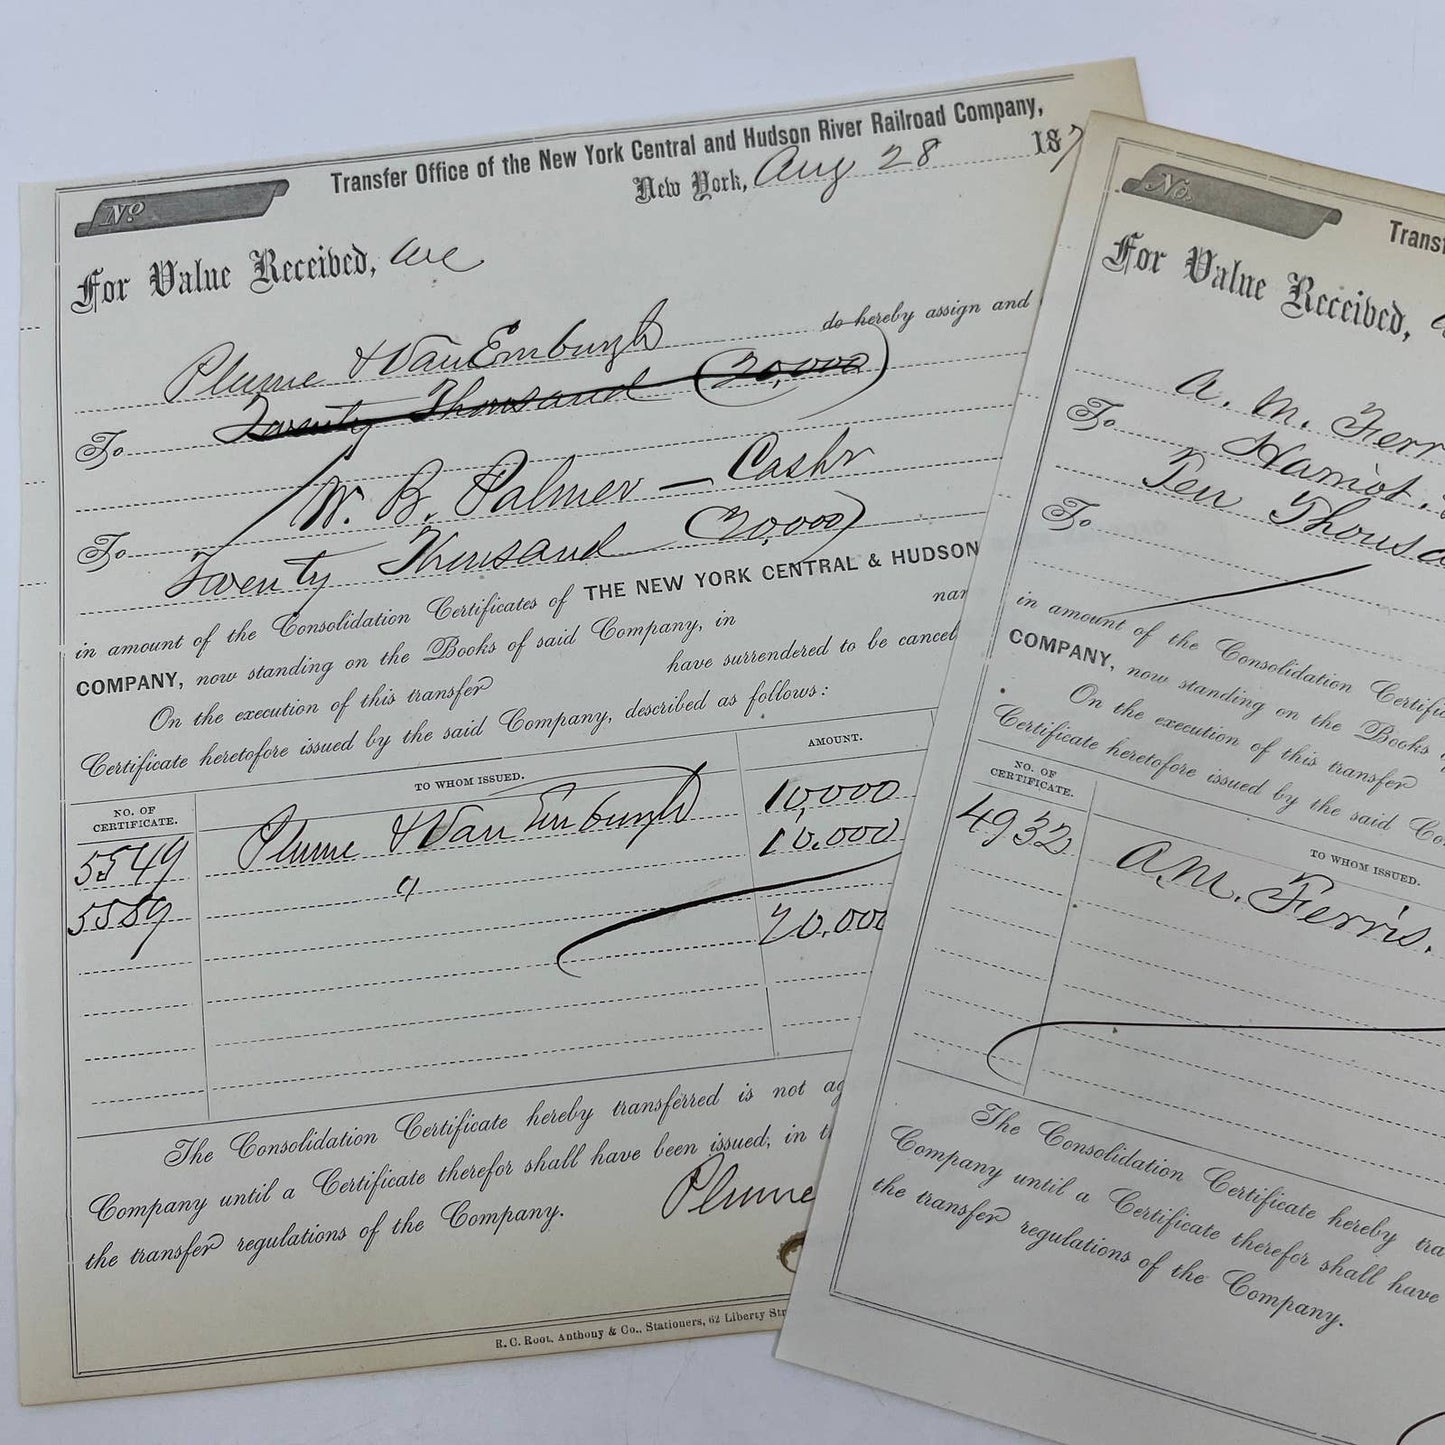 Transfer Office of the New York Central and Hudson River Railroad Company,
No
New York, Aug 28 187
For Value Received, we
Plume & Van Emburgh do hereby assign and
To Twenty Thousand (20,000)
W. B. Palmer — Cashr
To Twenty Thousand (20,000)
in amount of the Consolidation Certificates of THE NEW YORK CENTRAL & HUDSON
COMPANY, now standing on the Books of said Company, in nam
On the execution of this transfer have surrendered to be cancel
Certificate heretofore issued by the said Company, described as follows:
NO. OF CERTIFICATE. TO WHOM ISSUED. AMOUNT.
5549 Plume & Van Emburgh 10,000
5559 " 10.000
20.000
The Consolidation Certificate hereby transferred is not ag
Company until a Certificate therefor shall have been issued, in t
the transfer regulations of the Company.
Plume
R. C. Root, Anthony & Co., Stationers, 62 Liberty Str
No.
Transf
For Value Received,
A. M. Ferr
To Harriot.
Ten Thousa
To
in amount of the Consolidation Certific
COMPANY, now standing on the Books
On the execution of this transfer
Certificate heretofore issued by the said Co
NO. OF CERTIFICATE. TO WHOM ISSUED.
4932 A. M. Ferris.
The Consolidation Certificate hereby tra
Company until a Certificate therefor shall have
the transfer regulations of the Company.